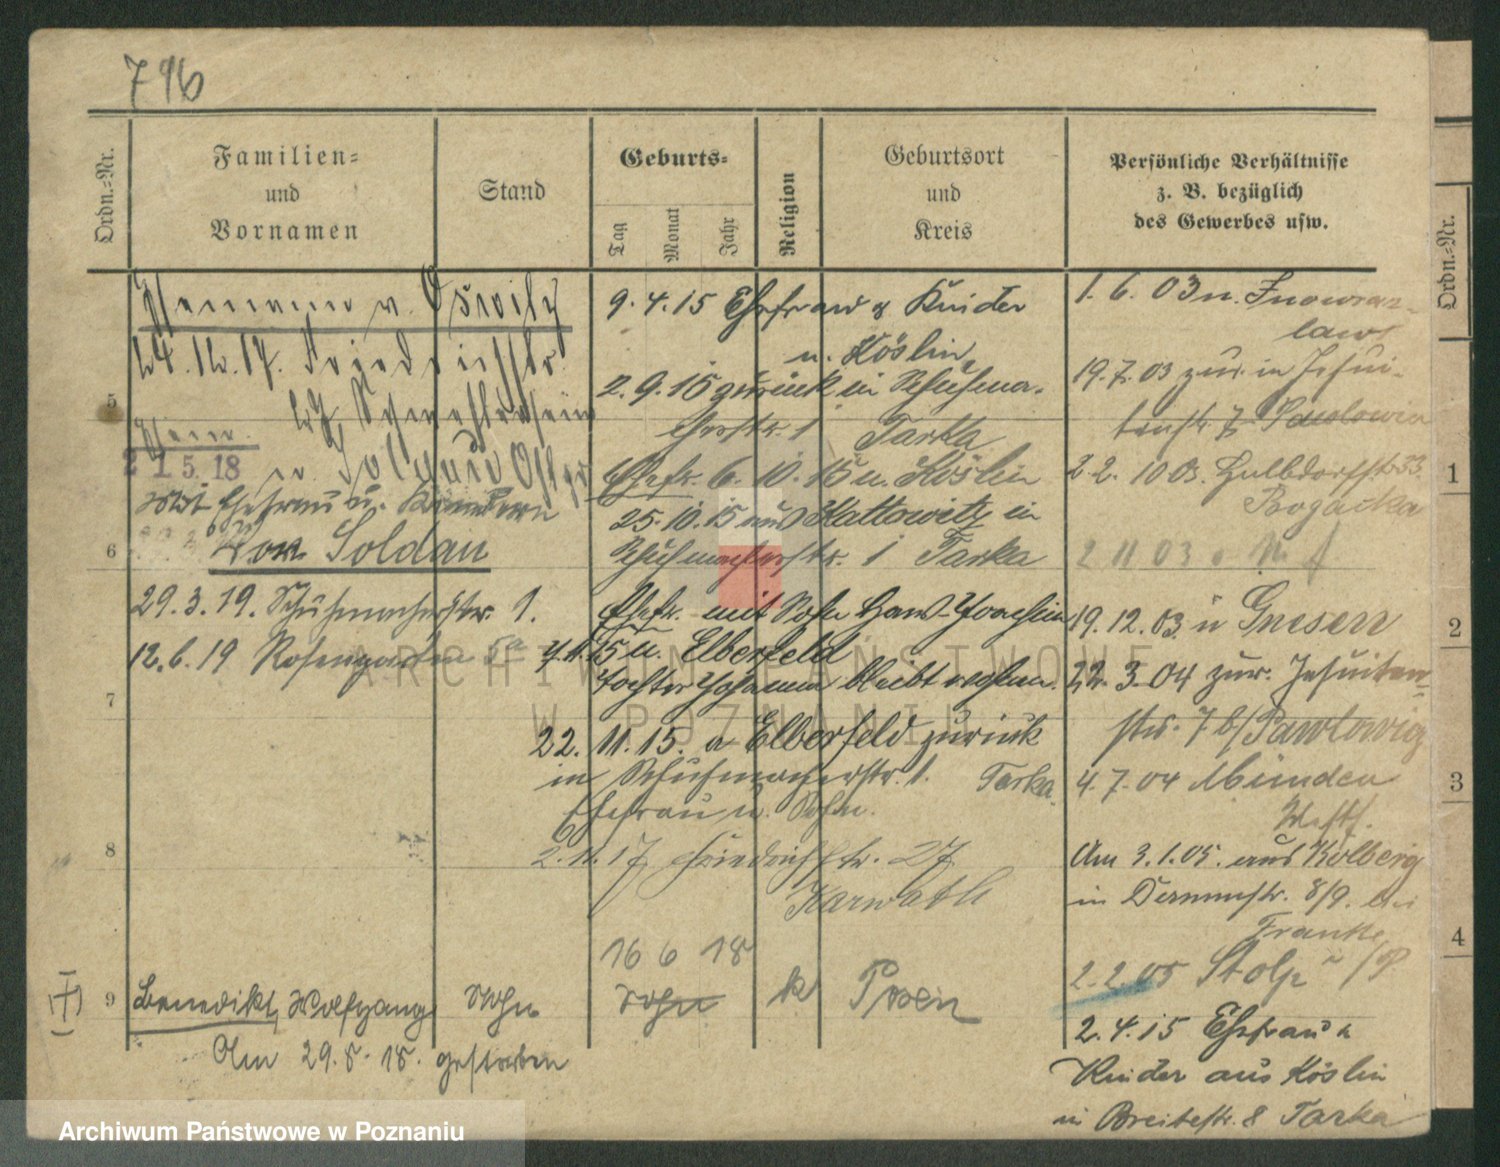 796
Ordn.-Nr.
Familien-
und
Vornamen
Stand
Geburts-
Tag
Monat
Jahr
Religion
Geburtsort
und
Kreis
Persönliche Verhältnisse
z. B. bezüglich
des Gewerbes usw.
Hemann v. Oswitz
24.12.17. Friedrichstr.
5
21.5.18
mit Ehefrau u. Kindern
6
von Soldau
29.3.19. Schuhmacherstr. 1.
12.6.19 Rosengarten 5a
7
8
9 Benedikt, Wolfgang Sohn
Am 29.8.18. gestorben
9.4.15 Ehefrau & Kinder
n. Köslin
2.9.15 zurück in Schuhma-
cherstr. 1 Tarka
Ehefr. 6.10.15 n. Köslin
25.10.15 aus Kattowitz in
Schuhmacherstr. 1 Tarka
Ehefr. mit Sohn Hans-Joachim
4.11.15 n. Elberfeld
Tochter Johanna bleibt wohnen.
22.11.15. a Elberfeld zurück
in Schuhmacherstr. 1. Tarka.
Ehefrau u. Sohn.
2.11.17 Friedrichstr. 27
Karwath
16 6 18
Sohn k Posen
1.6.03 n. Inowraz-
law
19.7.03 zur. in Jesui-
tenstr. 7 Pawlowin
2.2.1003. Halbdorfstr 33.
Bogacka
2 11 03
19.12.03. n Gnesen
22.3.04 zur. Jesuiten-
str. 7 b/Pawlowig
4.7.04 Münden
Westf.
Am 3.1.05. aus Kolberg
in Dammstr. 8/9. bei
Franke
2.2.05 Stolp i/P
2.4.15 Ehefrau u
Kinder aus Köslin
in Breitestr. 8 Tarka
Ordn.-Nr.
1
2
3
4
ARCHIWUM PAŃSTWOWE
W POZNANIU
Archiwum Państwowe w Poznaniu